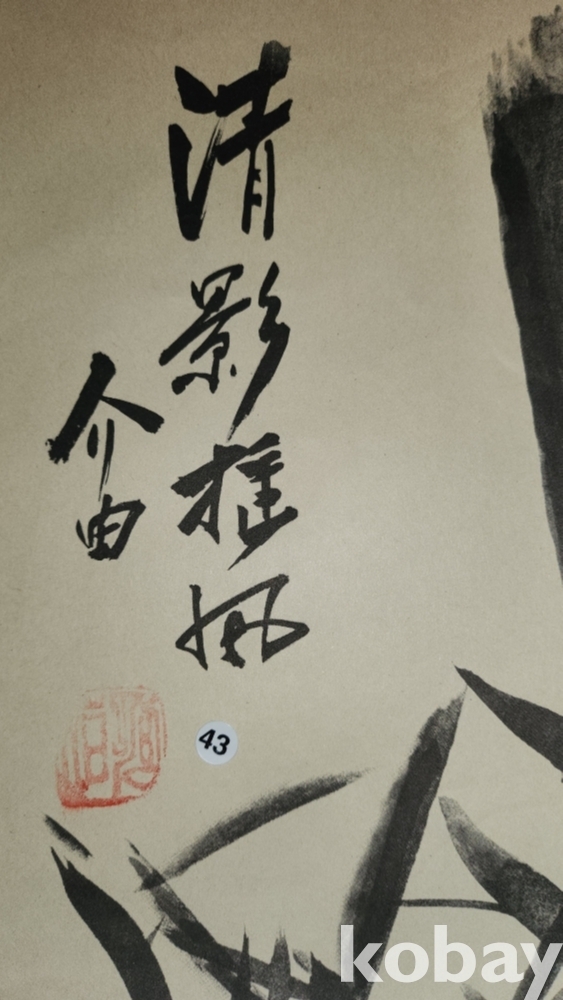 清影摇風
介由
43
kobay